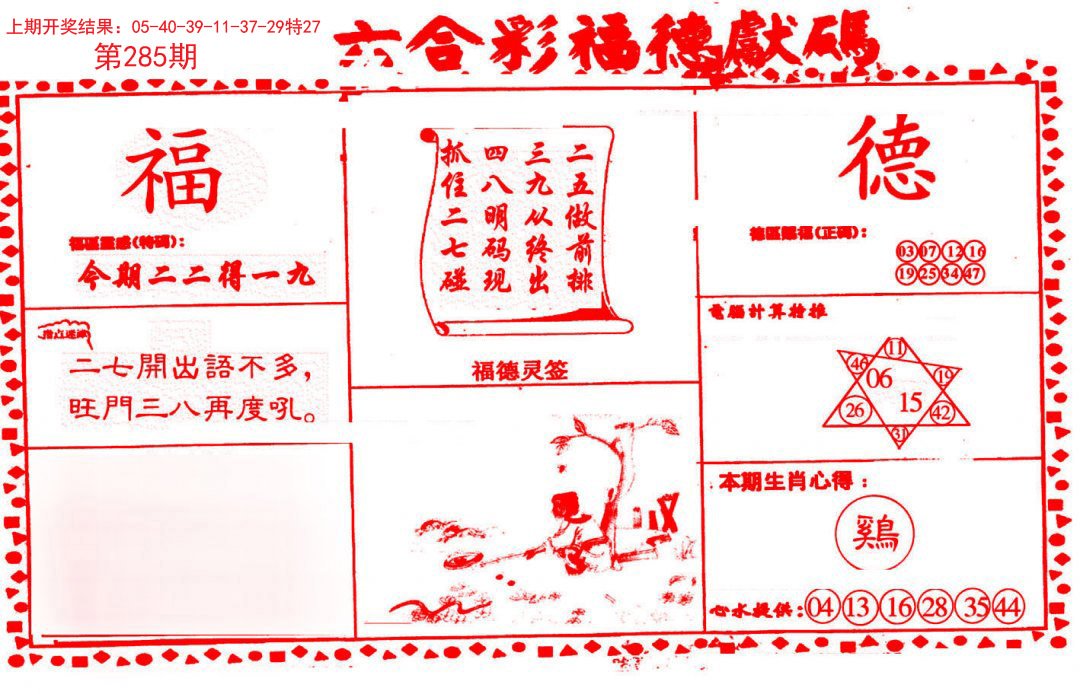 上期开奖结果：05-40-39-11-37-29特27
第285期
六合彩福德獻碼
福
福區靈感(特码)：
今期二二得一九
指点迷津
二七開出語不多，
旺門三八再度吼。
二五做前排
三九从终出
四八明码现
抓住二七碰
福德灵签
德
德區賜福(正码)：
03 07 12 16
19 25 34 47
電腦計算特推
11
46 06 19
26 15 42
31
本期生肖心得：
鷄
心水提供：04 13 16 28 35 44